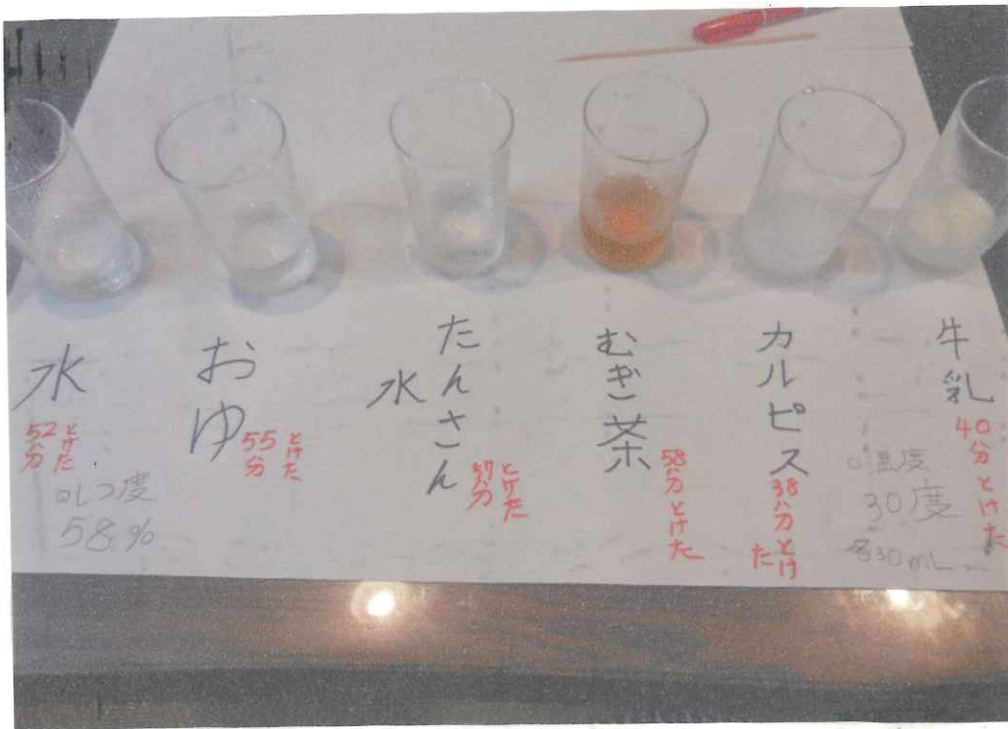 水
52分
とけた
○しつ度
58%
おゆ
55分
とけた
たんさん
水
57分
とけた
むぎ茶
58分とけた
カルピス
38分とけ
た
牛乳
40分とけた
○温度
30度
各30mL